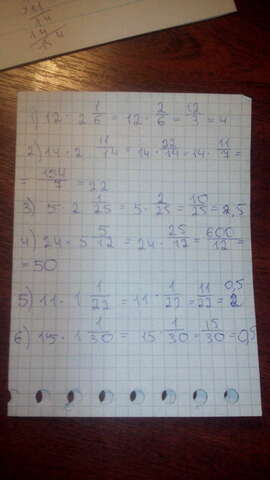 1) 12 · 2 1/6 = 12 · 2/6 = 12/3 = 4
2) 14 · 2 11/14 = 14 · 22/14 = 14 · 11/7 =
= 154/7 = 22
3) 5 · 2 1/25 = 5 · 2/25 = 10/25 = 2,5
4) 24 · 5 5/12 = 24 · 25/12 = 600/12 =
= 50
5) 11 · 1 1/22 = 11 · 1/22 = 11/22 = 0,5
6) 15 · 1 1/30 = 15 1/30 = 15/30 = 0,5